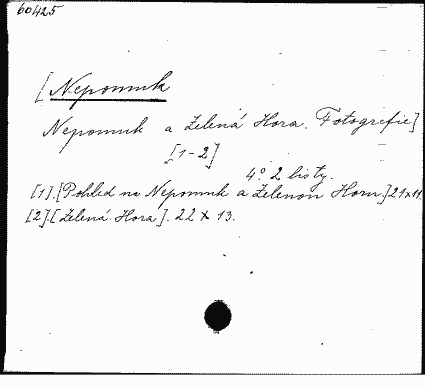 60425
[Nepomuk
Nepomuk a Zelená Hora. Fotografie]
[1-2]
4° 2 listy.
[1].[Pohled na Nepomuk a Zelenou Horu.] 21x11.
[2].[Zelená Hora]. 22 x 13.